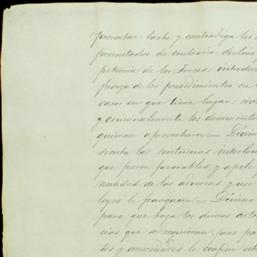 presentar: tache y contradiga los
presentados de contrario: decline
petencia de los Jueces: introduz
fuerza de los procedimientos en
caso en que tiene lugar:
y criminalmente los documentos
quieran aprovecharse — Decima
sienta las sentencias interlocu
que fueren favorables, y apele
nulidad de las adversas y use
leyes le franquean — Décima
para que haga los demas actos
cias que se requieran, pues para
tes y anecsidades le confiere